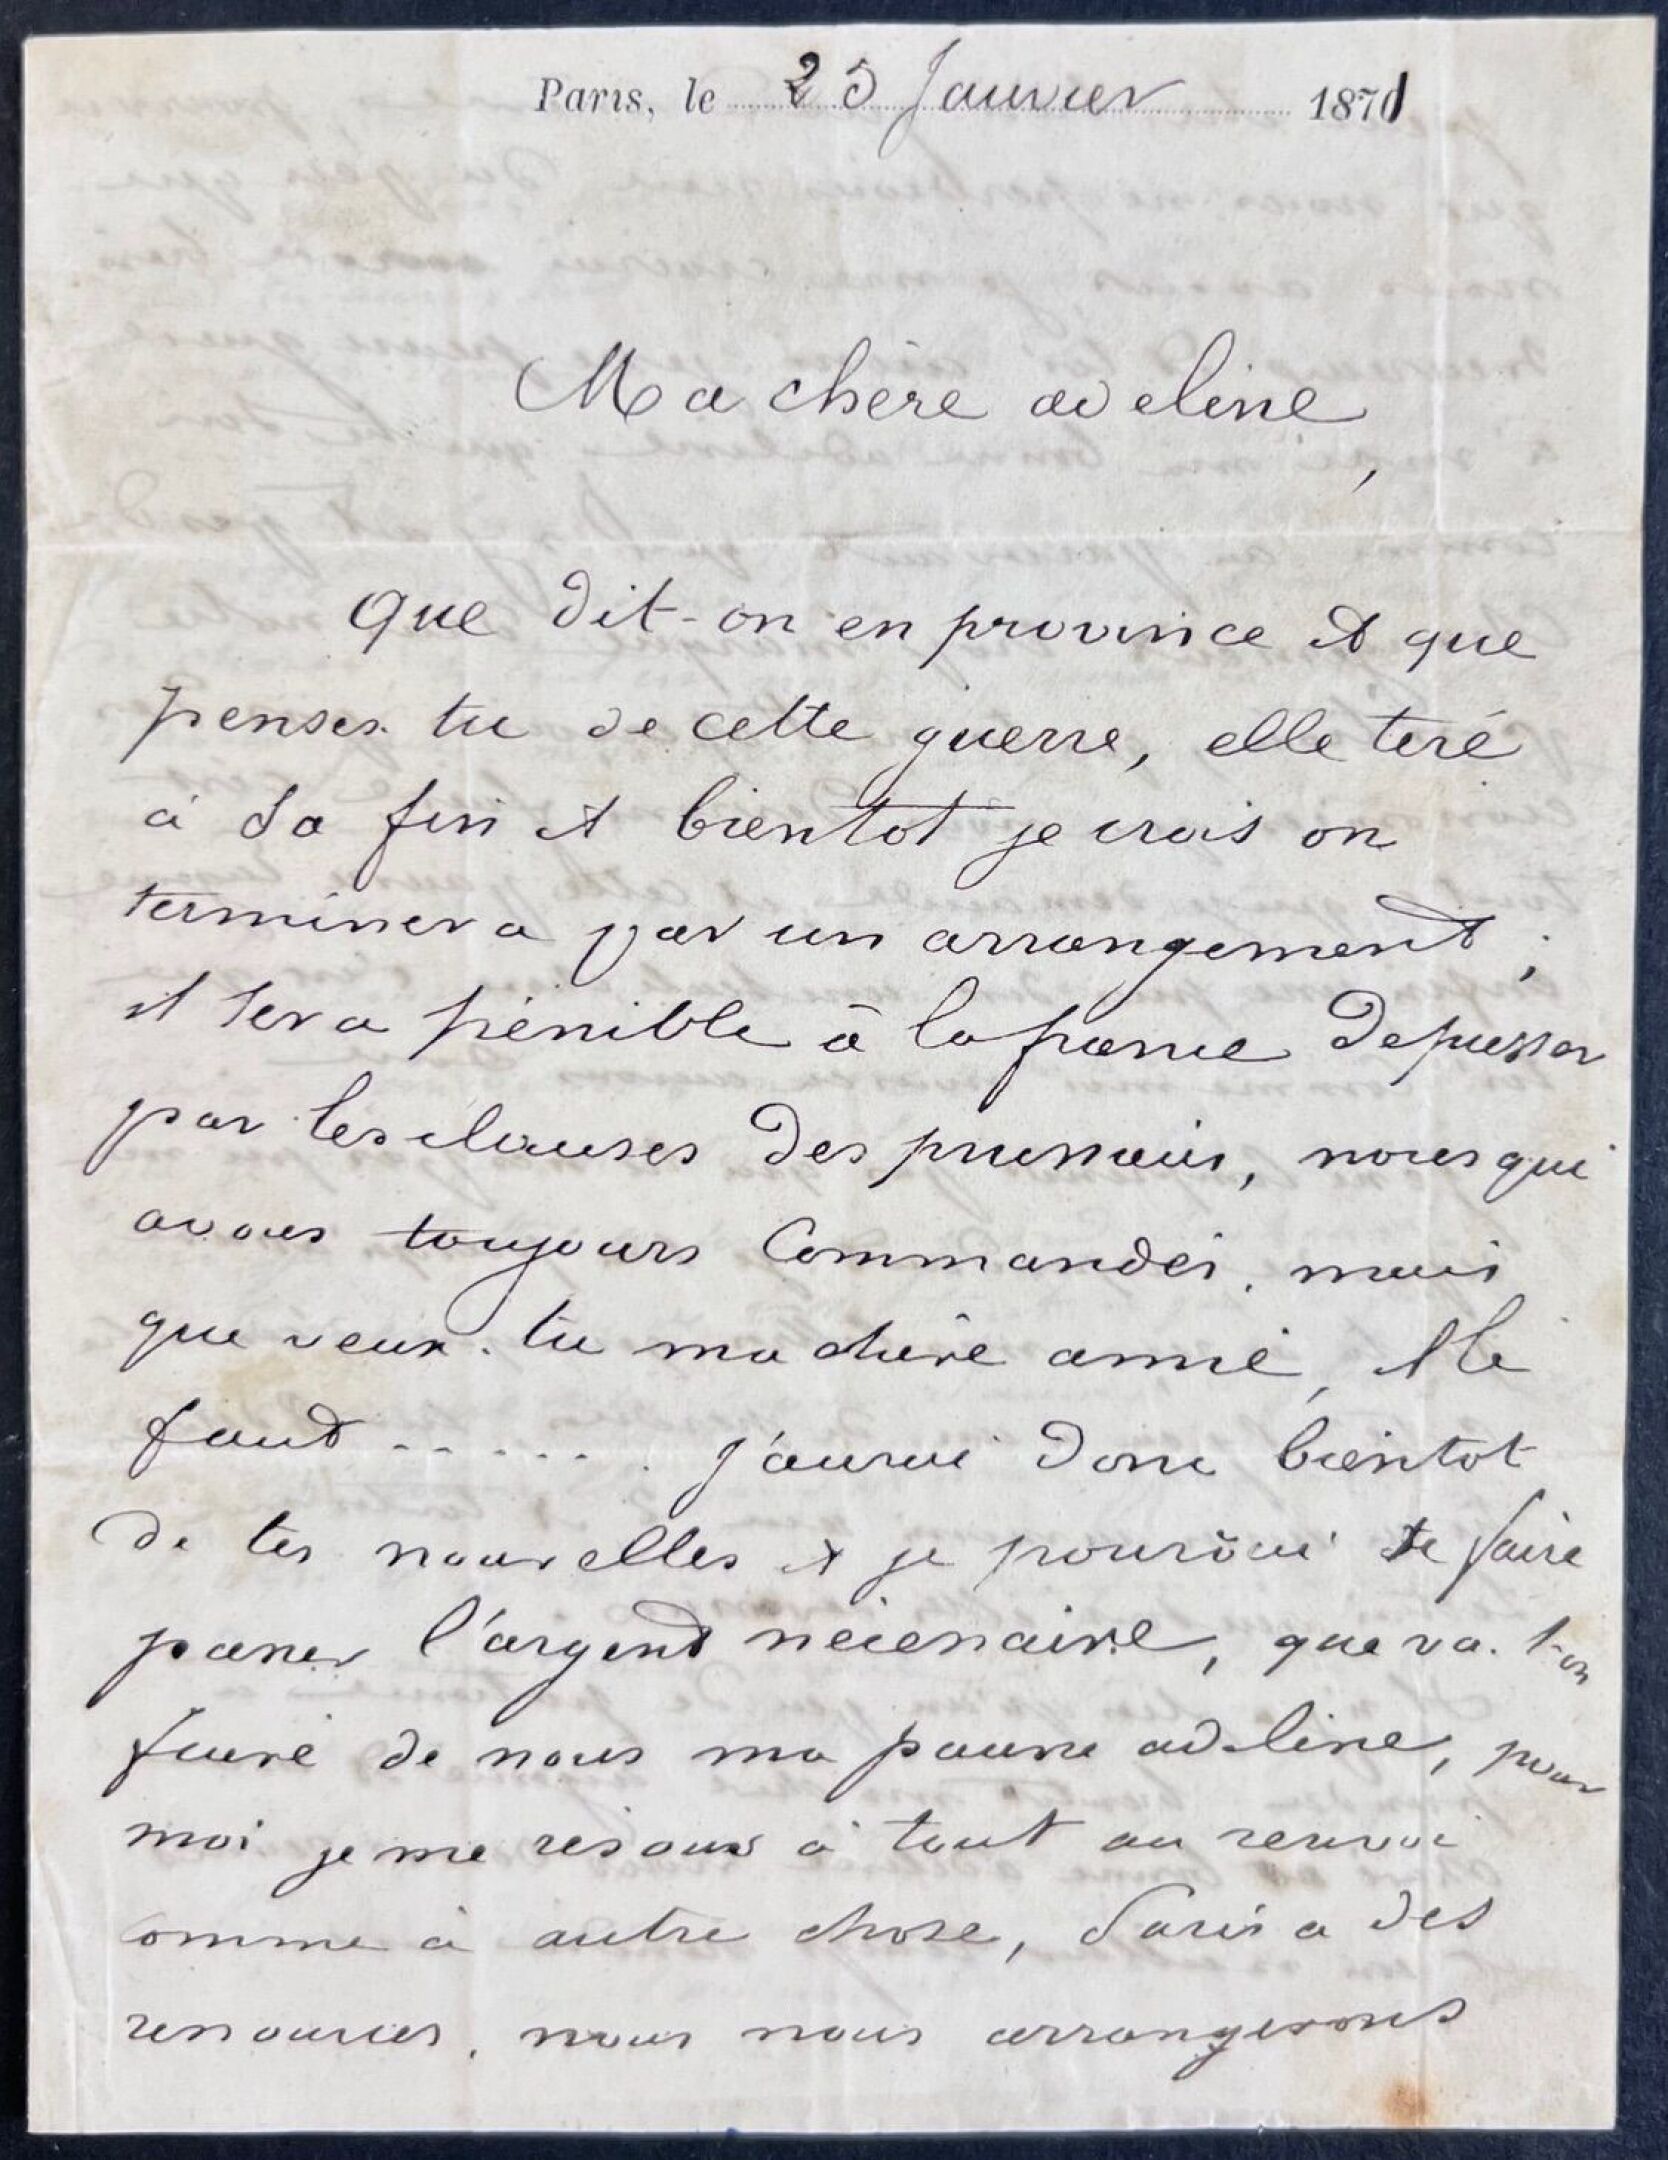 Paris, le 25 Janvier 1871
Ma chère adeline,
Que dit-on en province et que
penses tu de cette guerre, elle tire
à sa fin et bientot je crois on
terminera par un arrangement ;
il sera pénible à la france de passer
par les clauses des prussiens, nous qui
avons toujours Commandés, mais
que veux-tu ma chère amie, Il le
faut ...... J'aurai donc bientot
de tes nouvelles et je pourrai te faire
passer l'argent nécessaire, que va-t-on
faire de nous ma pauvre adeline, pour
moi je me résous à tout au renvoi
comme à autre chose, Paris a des
ressources, nous nous arrangerons